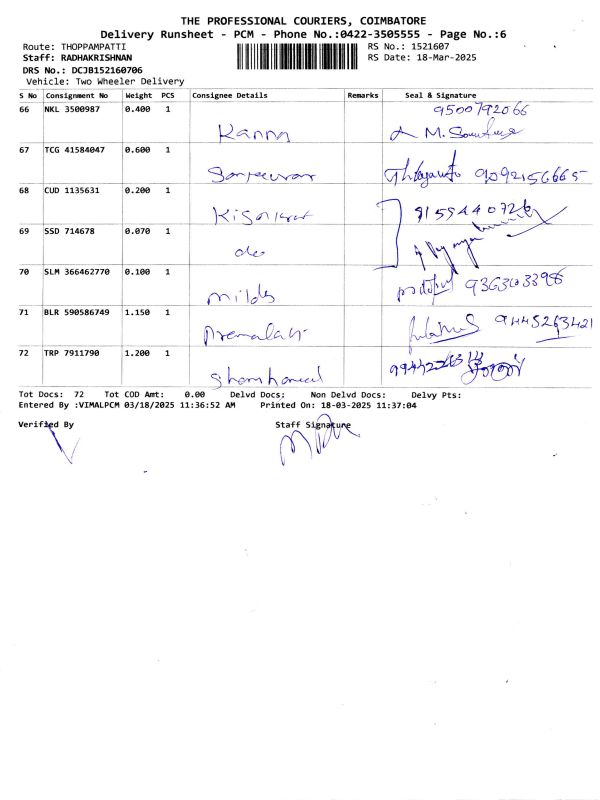 THE PROFESSIONAL COURIERS, COIMBATORE
Delivery Runsheet - PCM - Phone No.:0422-3505555 - Page No.:6
Route: THOPPAMPATTI RS No.: 1521607
Staff: RADHAKRISHNAN RS Date: 18-Mar-2025
DRS No.: DCJB152160706
Vehicle: Two Wheeler Delivery
S No Consignment No Weight PCS Consignee Details Remarks Seal & Signature
66 NKL 3500987 0.400 1 9500792066
Kanna
67 TCG 41584047 0.600 1
9092156665
68 CUD 1135631 0.200 1
69 SSD 714678 0.070 1
do
70 SLM 366462770 0.100 1
9363103398
71 BLR 590586749 1.150 1
9445263421
72 TRP 7911790 1.200 1
Tot Docs: 72 Tot COD Amt: 0.00 Delvd Docs: Non Delvd Docs: Delvy Pts:
Entered By :VIMALPCM 03/18/2025 11:36:52 AM Printed On: 18-03-2025 11:37:04
Verified By Staff Signature